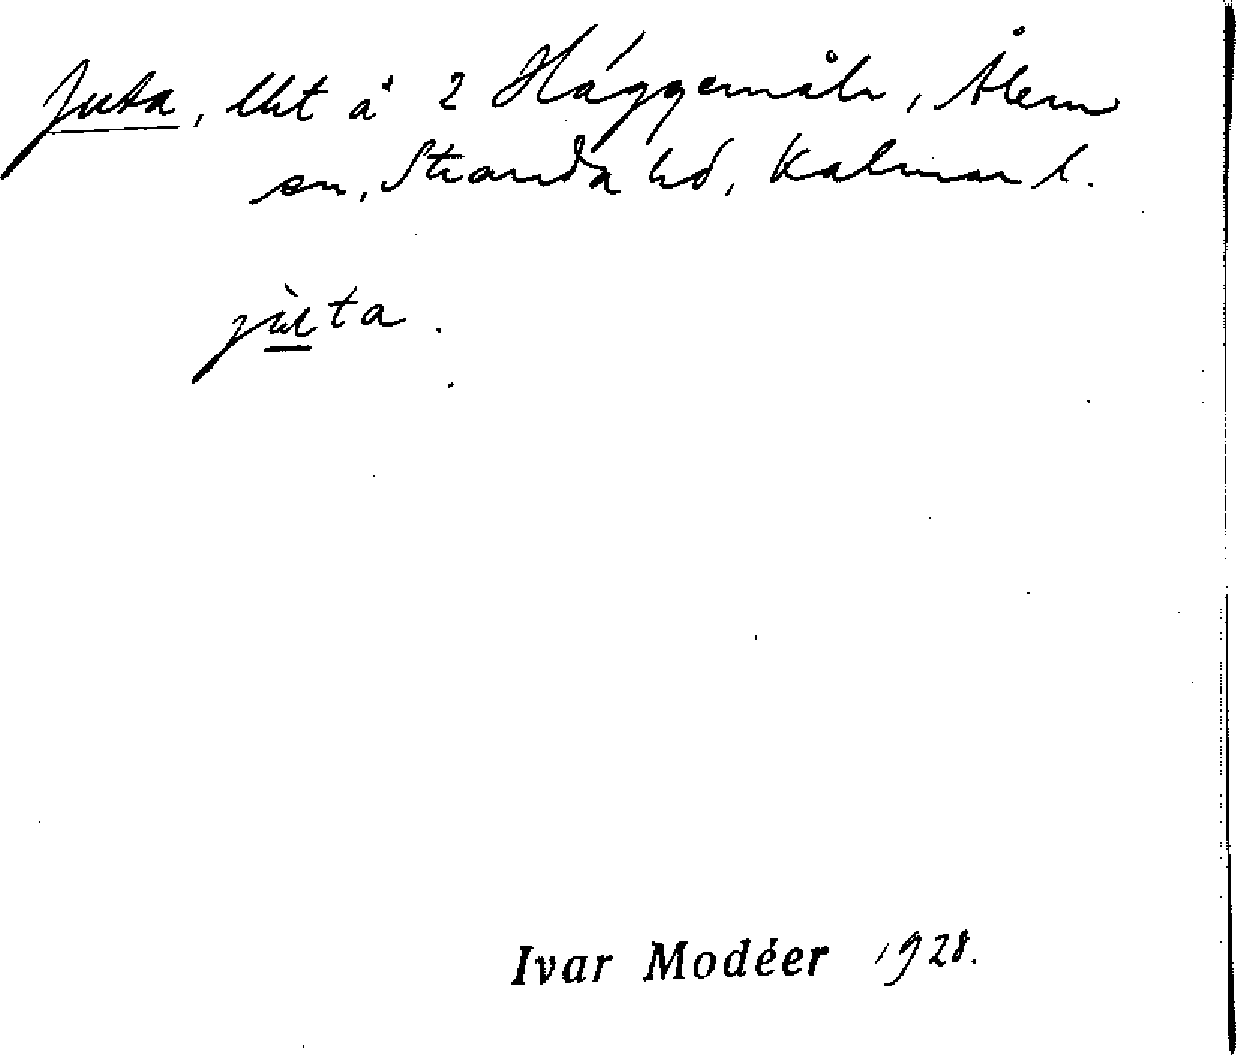 Juta, lht å 2 Häggemåla, Ålem
sn, Stranda hd, Kalmar l.
jùta.
Ivar Modéer 1928.